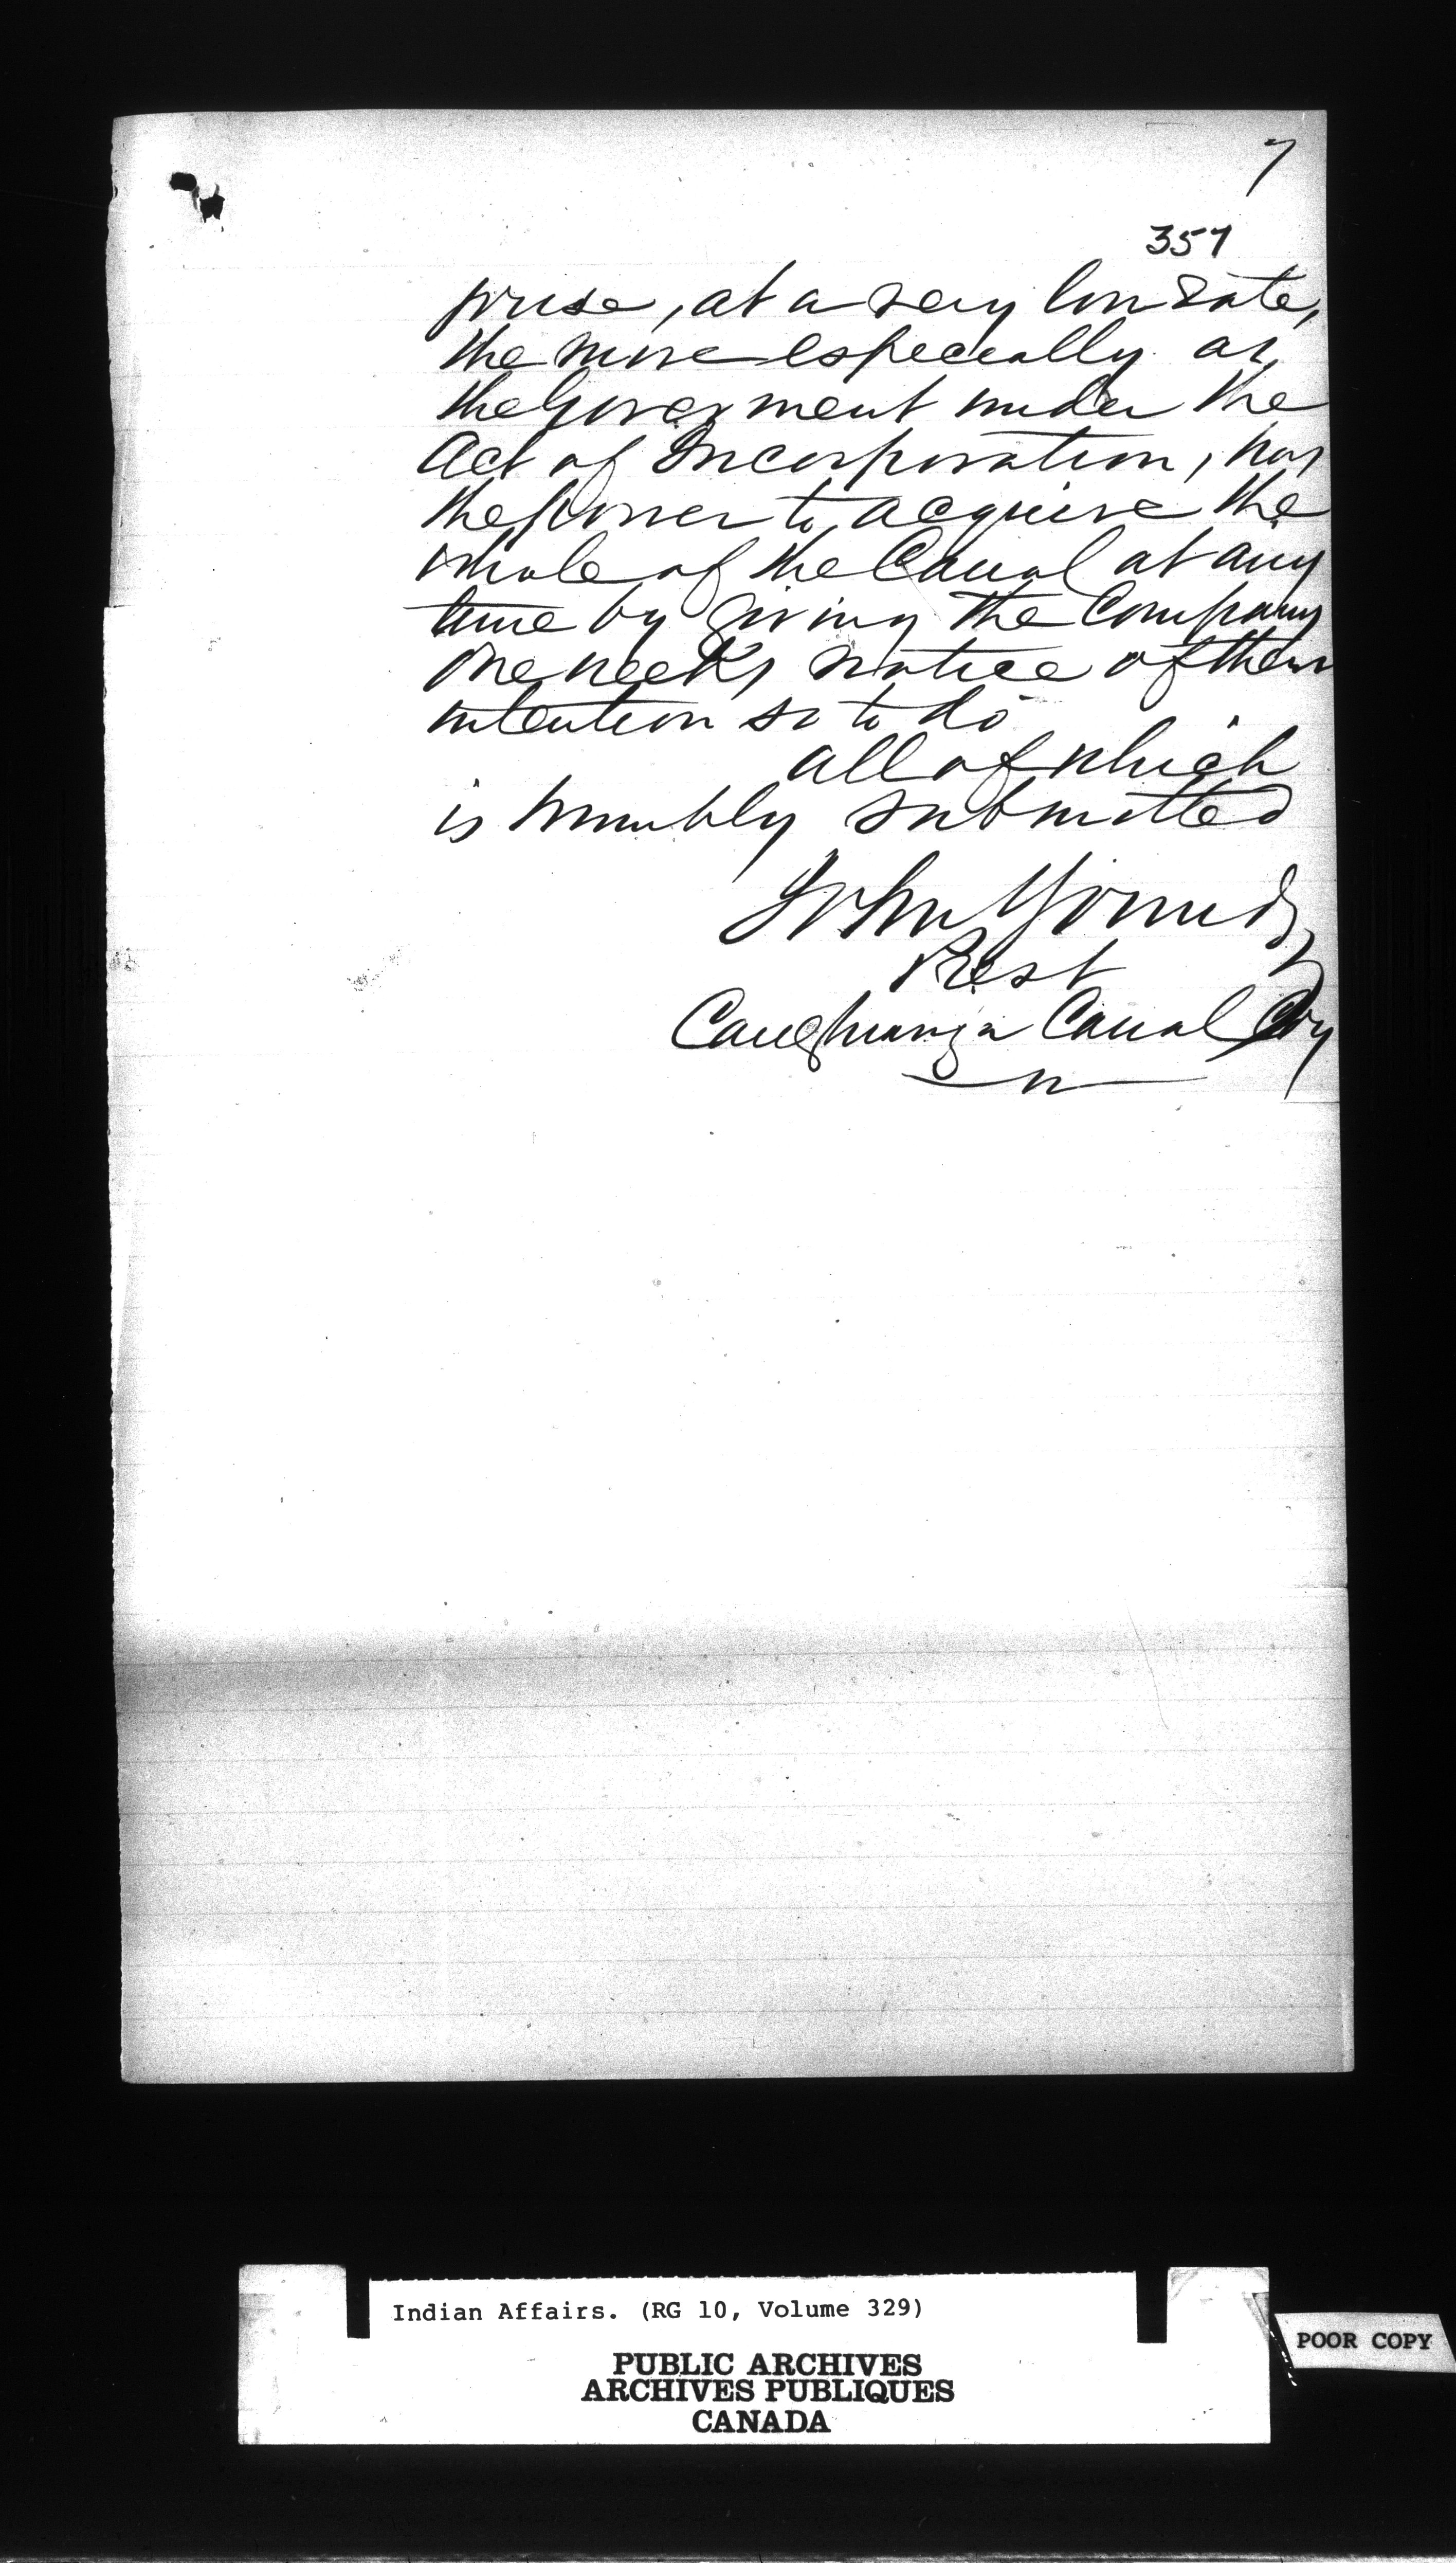 7
357
prise, at a very low rate,
the more especially as
the Goverment under the
Act of Incorporation, has
the power to acquire the
whole of the Canal at any
time by giving the Company
one weeks notice of their
intention so to do
all of which
is humbly submitted
John Young
Prest
Caughnawaga Canal Coy
Indian Affairs. (RG 10, Volume 329)
PUBLIC ARCHIVES
ARCHIVES PUBLIQUES
CANADA
POOR COPY